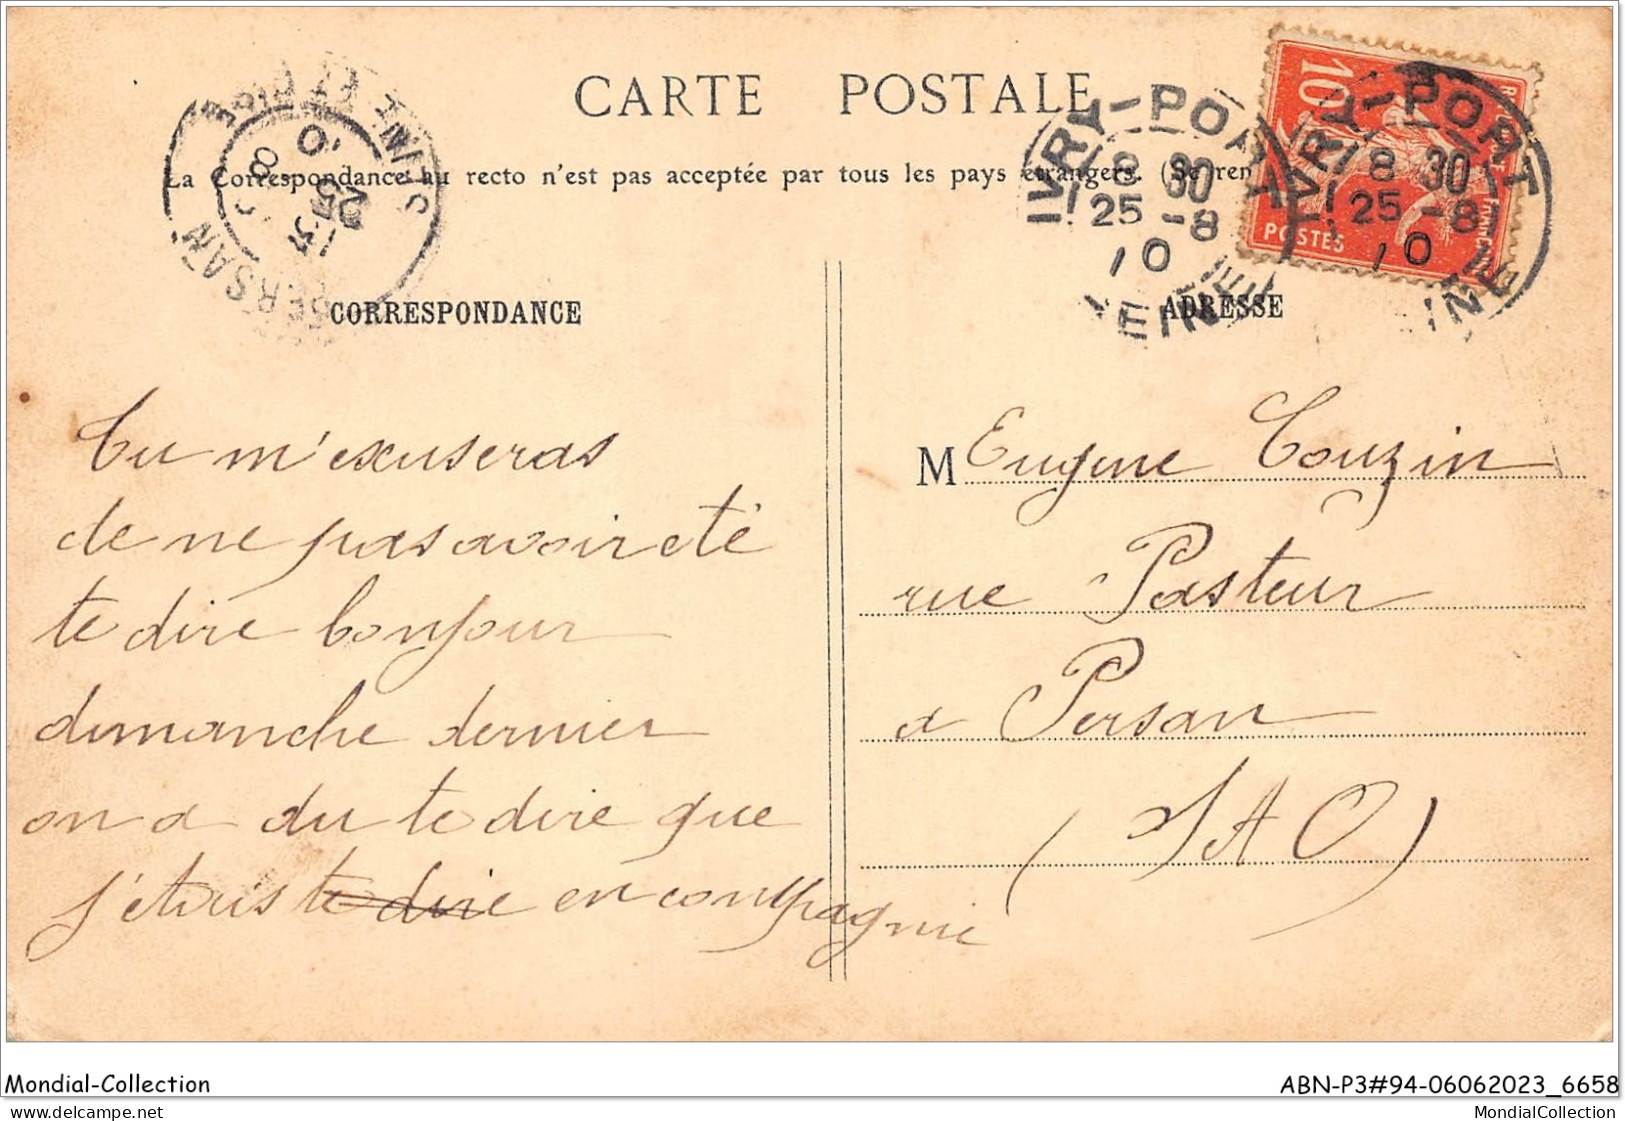 CARTE POSTALE
La Correspondance au recto n'est pas acceptée par tous les pays étrangers. (Se ren
IVRY-PORT
18 30
25 -8
10
SEINE
IVRY-PORT
18 30
25 -8
10
SEINE
10
POSTES
PERSAN
SEINE ET OISE
15
25
8
10
CORRESPONDANCE
ADRESSE
Tu m'excuseras
de ne pas avoir été
te dire bonjour
dimanche dernier
on a du te dire que
j'étais te dire en compagnie
M Eugene Touzin
rue Pasteur
a Persan
(S A O)
Mondial-Collection
ABN-P3#94-06062023_6658
MondialCollection
MondialCollection